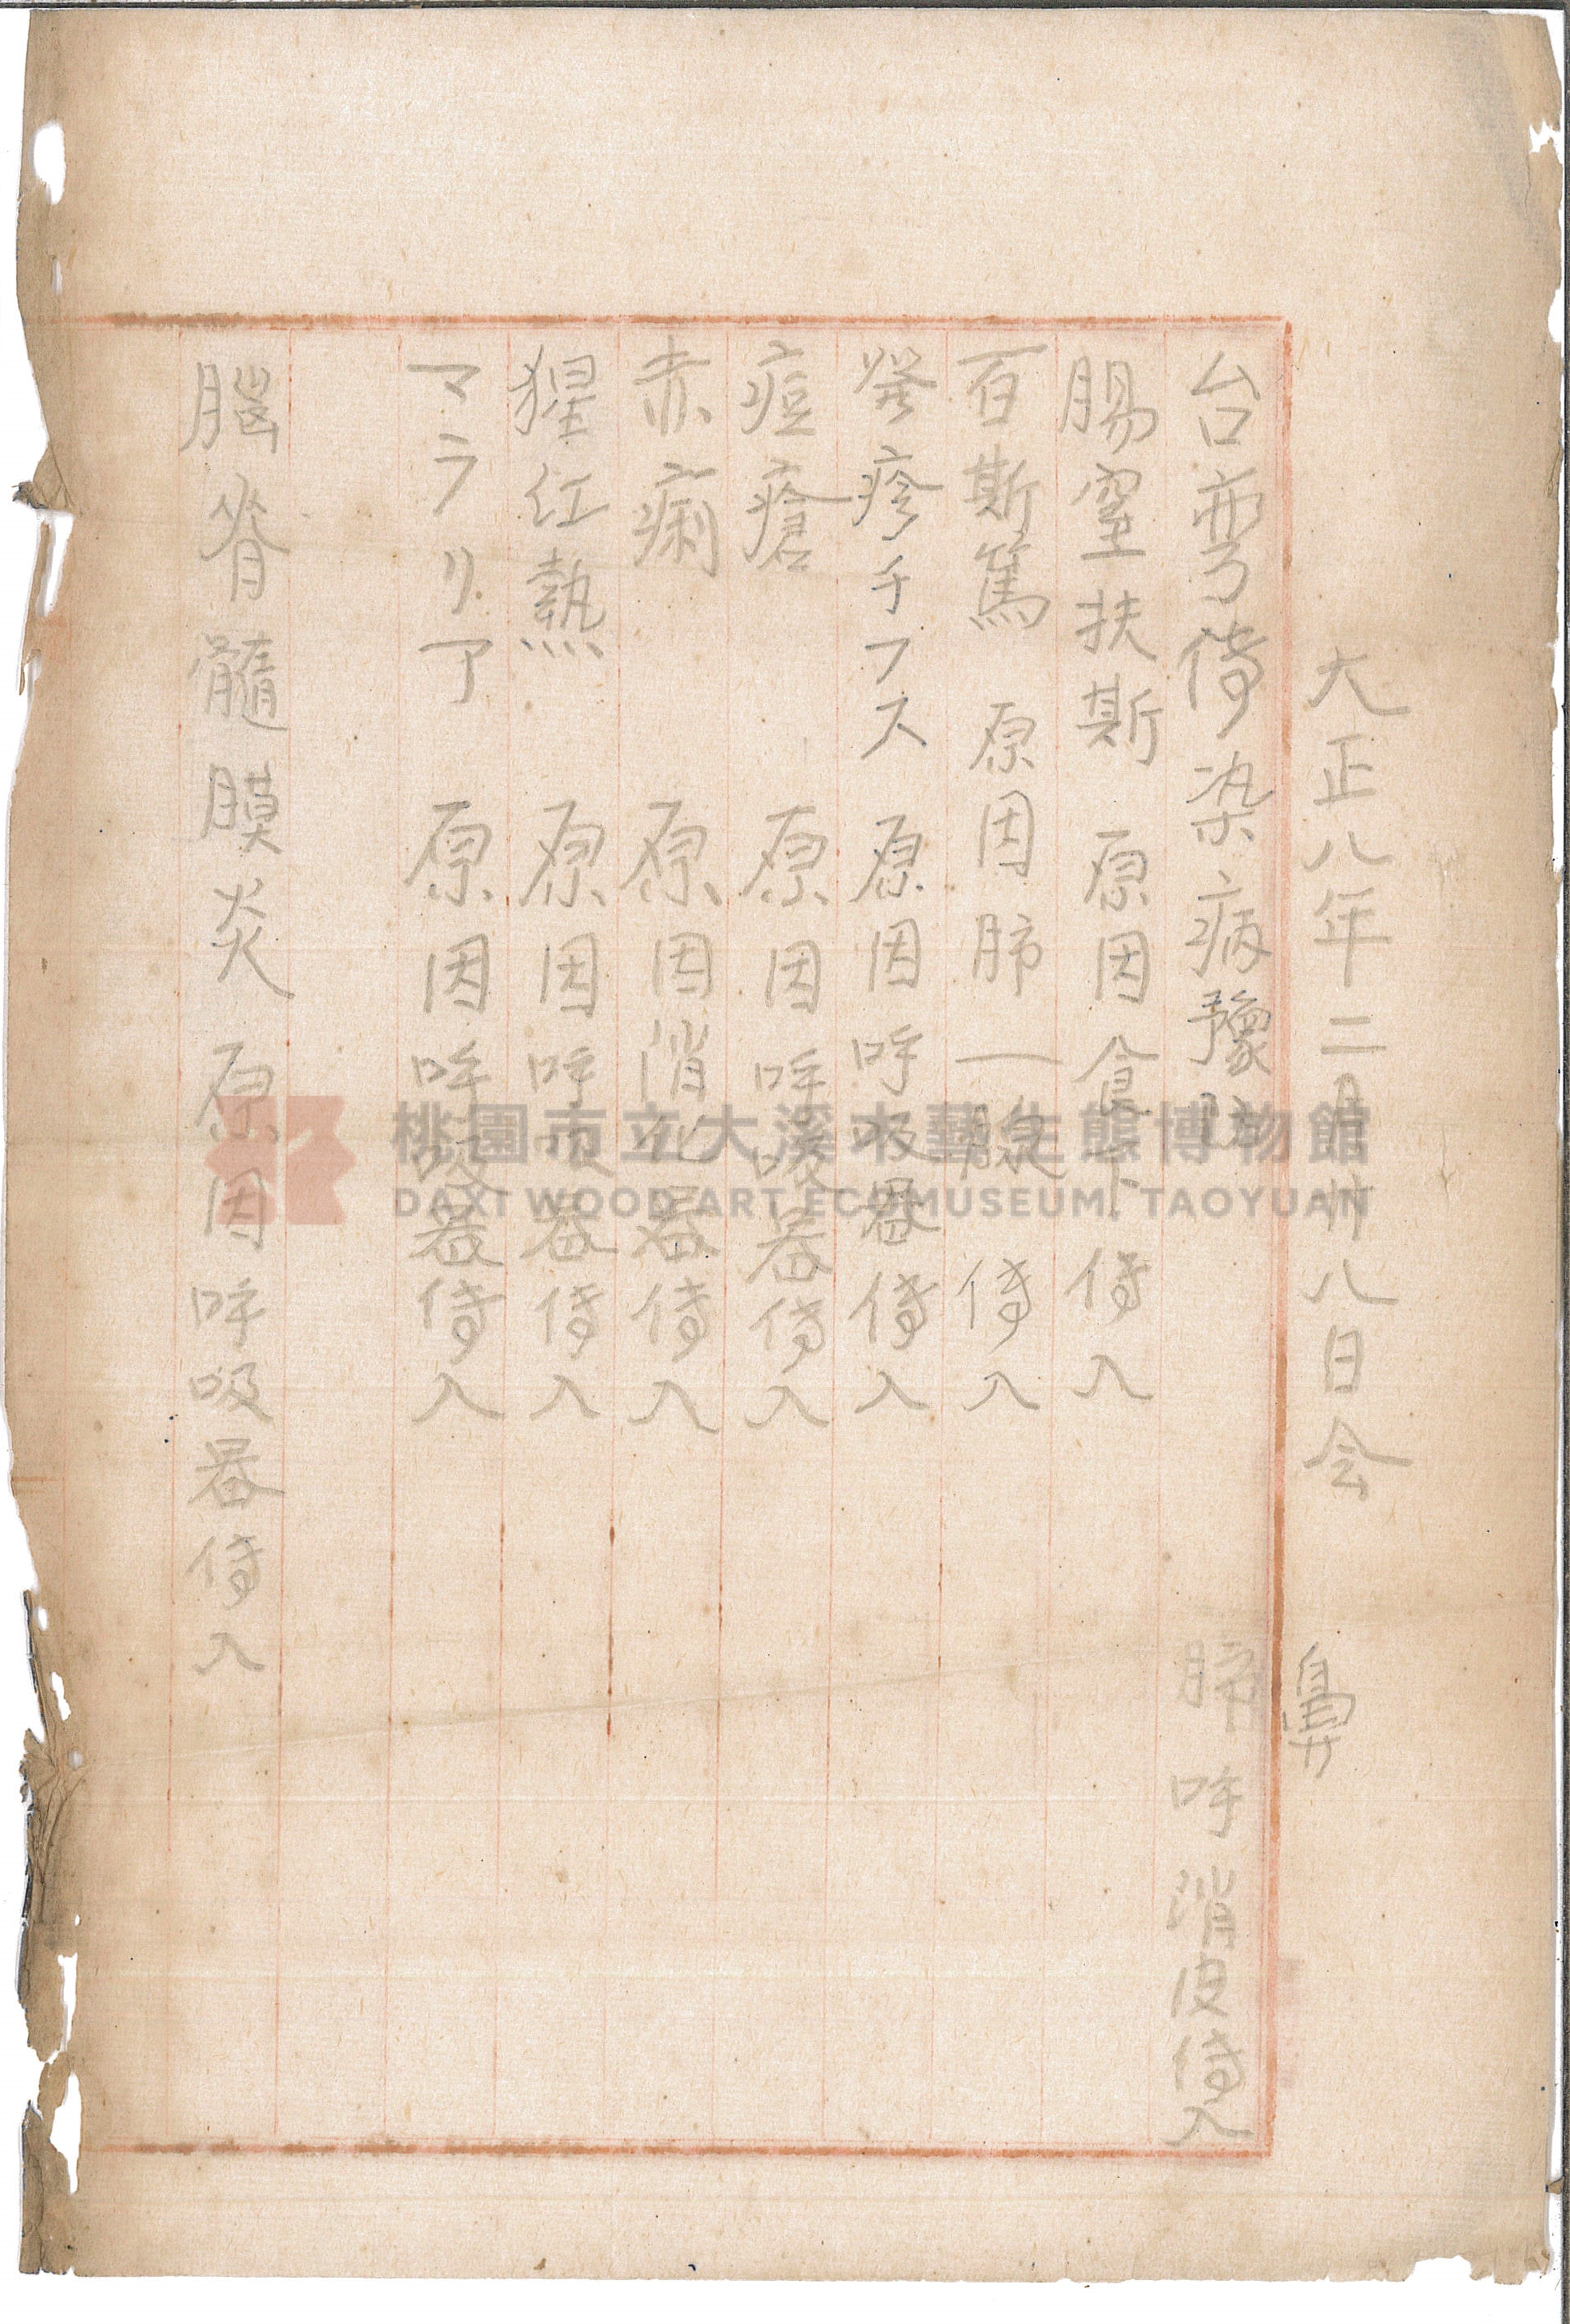 大正八年二月廿八日会
鼻
台弯傳染病豫防
肺 呼 消 皮 傳入
腸窒扶斯 原因食下傳入
百斯篤 原因肺一腺 傳入
發疹チフス 原因呼吸器傳入
痘瘡 原因呼吸器傳入
赤痢 原因消化器傳入
猩红熱 原因呼吸器傳入
マラリア 原因呼吸器傳入
腦脊髓膜炎 原因呼吸器傳入
桃園市立大溪木藝生態博物館
DAXI WOOD ART ECOMUSEUM, TAOYUAN